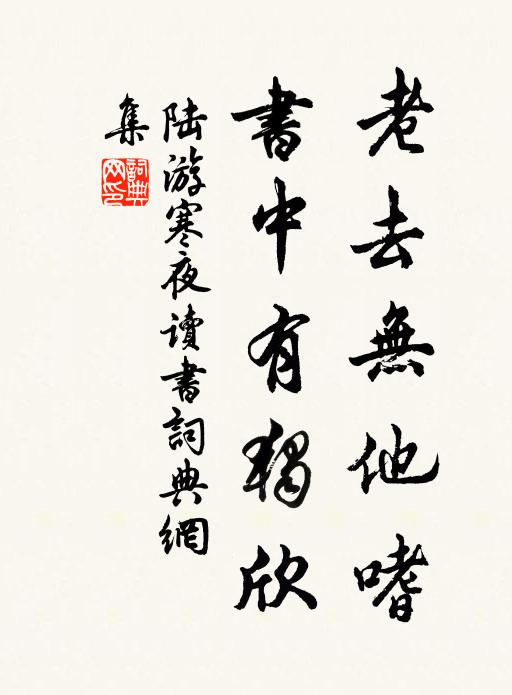 老去無他嗜
書中有獨欣
陆游寒夜讀書詞典網
集
詞典
网印